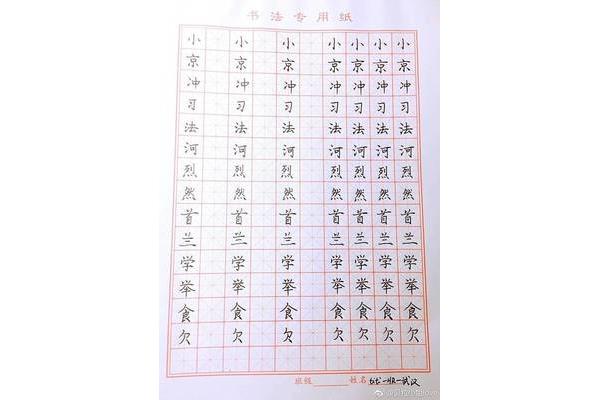 书法专用纸
小 小 小 小 小 小 小
京 京 京 京 京 京 京
冲 冲 冲 冲 冲 冲 冲
习 习 习 习 习 习 习
法 法 法 法 法 法 法
河 河 河 河 河 河 河
烈 烈 烈 烈 烈 烈 烈
然 然 然 然 然 然 然
首 首 首 首 首 首 首
兰 兰 兰 兰 兰 兰 兰
学 学 学 学 学 学 学
举 举 举 举 举 举 举
食 食 食 食 食 食 食
欠 欠 欠 欠 欠 欠 欠
班级 姓名